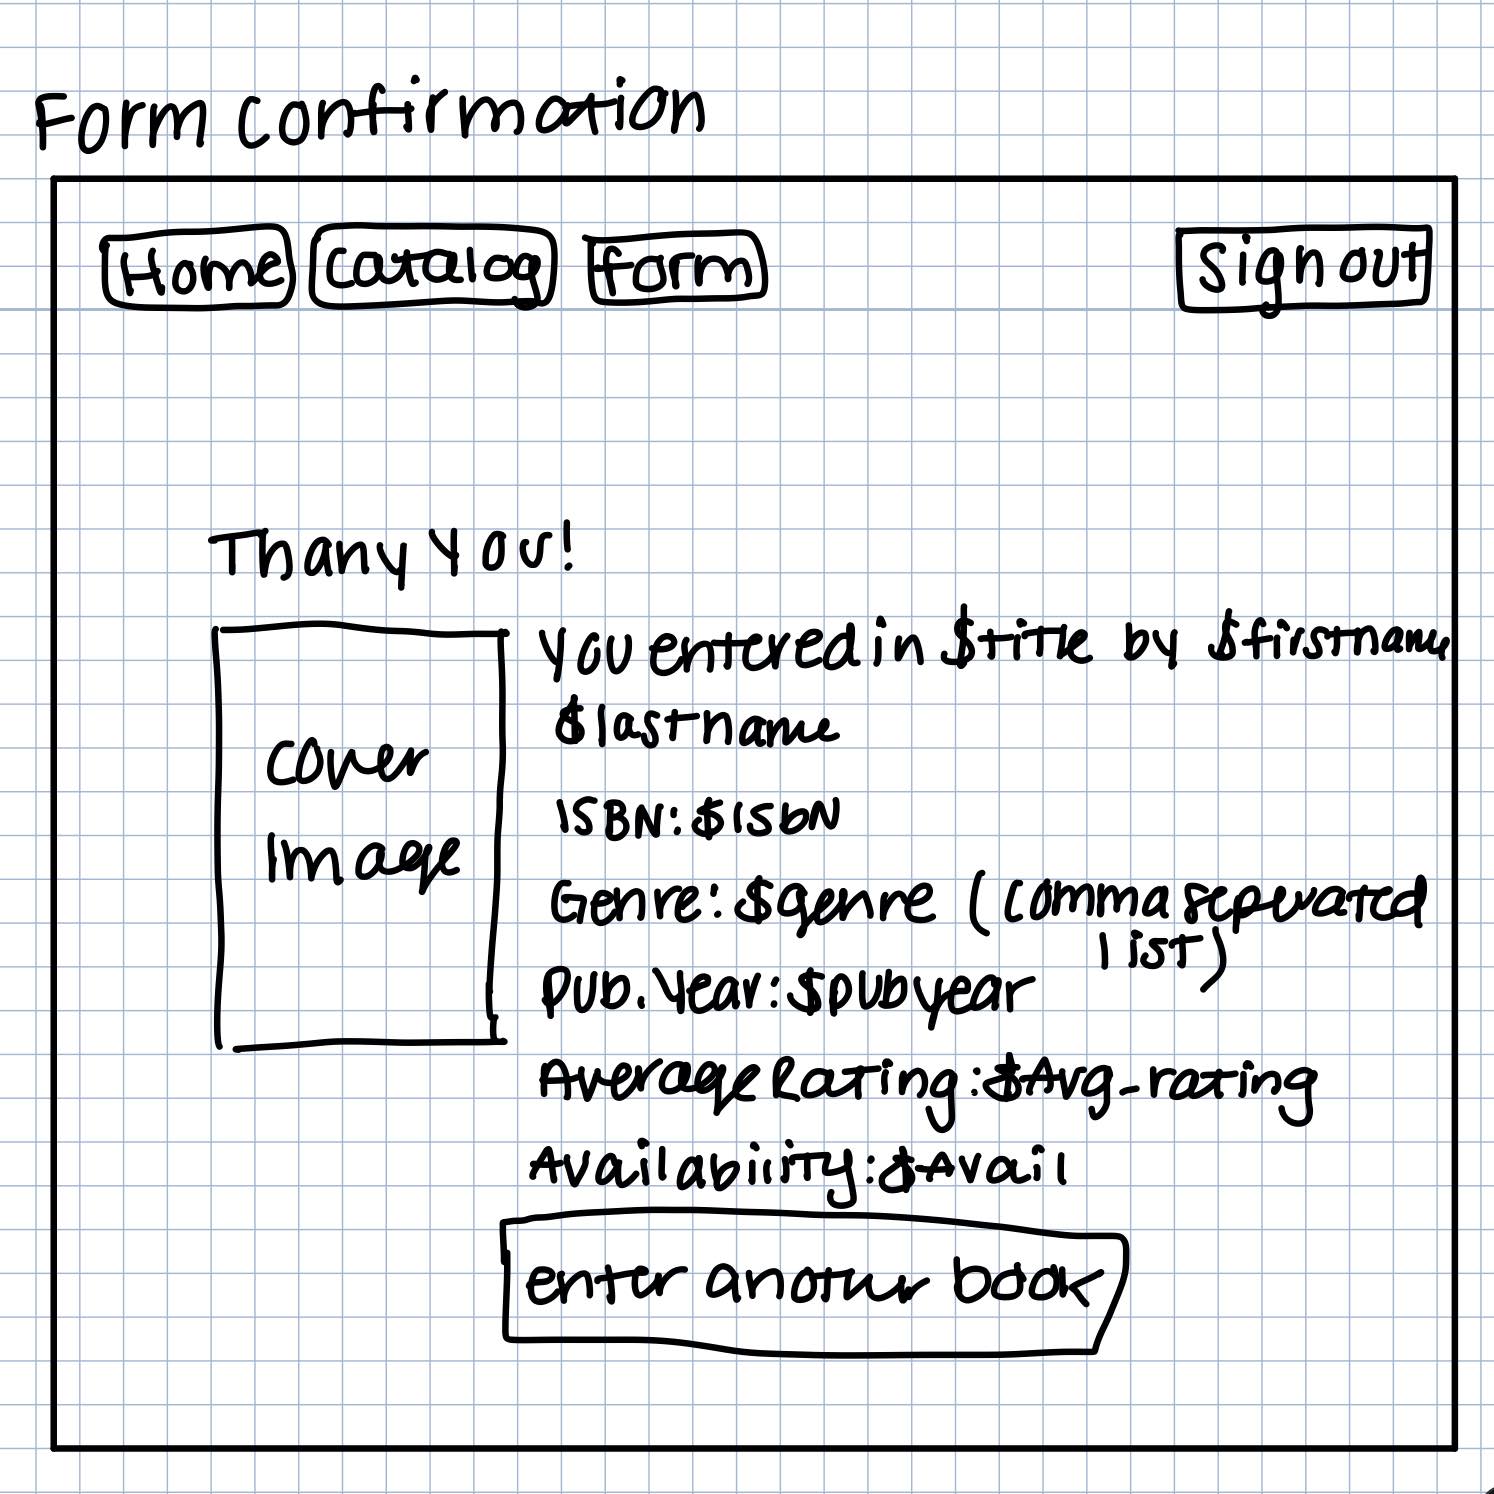 Form Confirmation
Home Catalog form Sign out
Thany You!
You entered in $title by $firstname
$lastname
cover
image
ISBN: $ISbN
Genre: $genre (comma seperated
list)
Pub. Year: $pubyear
Average Rating: $Avg_rating
Availability: $Avail
enter another book